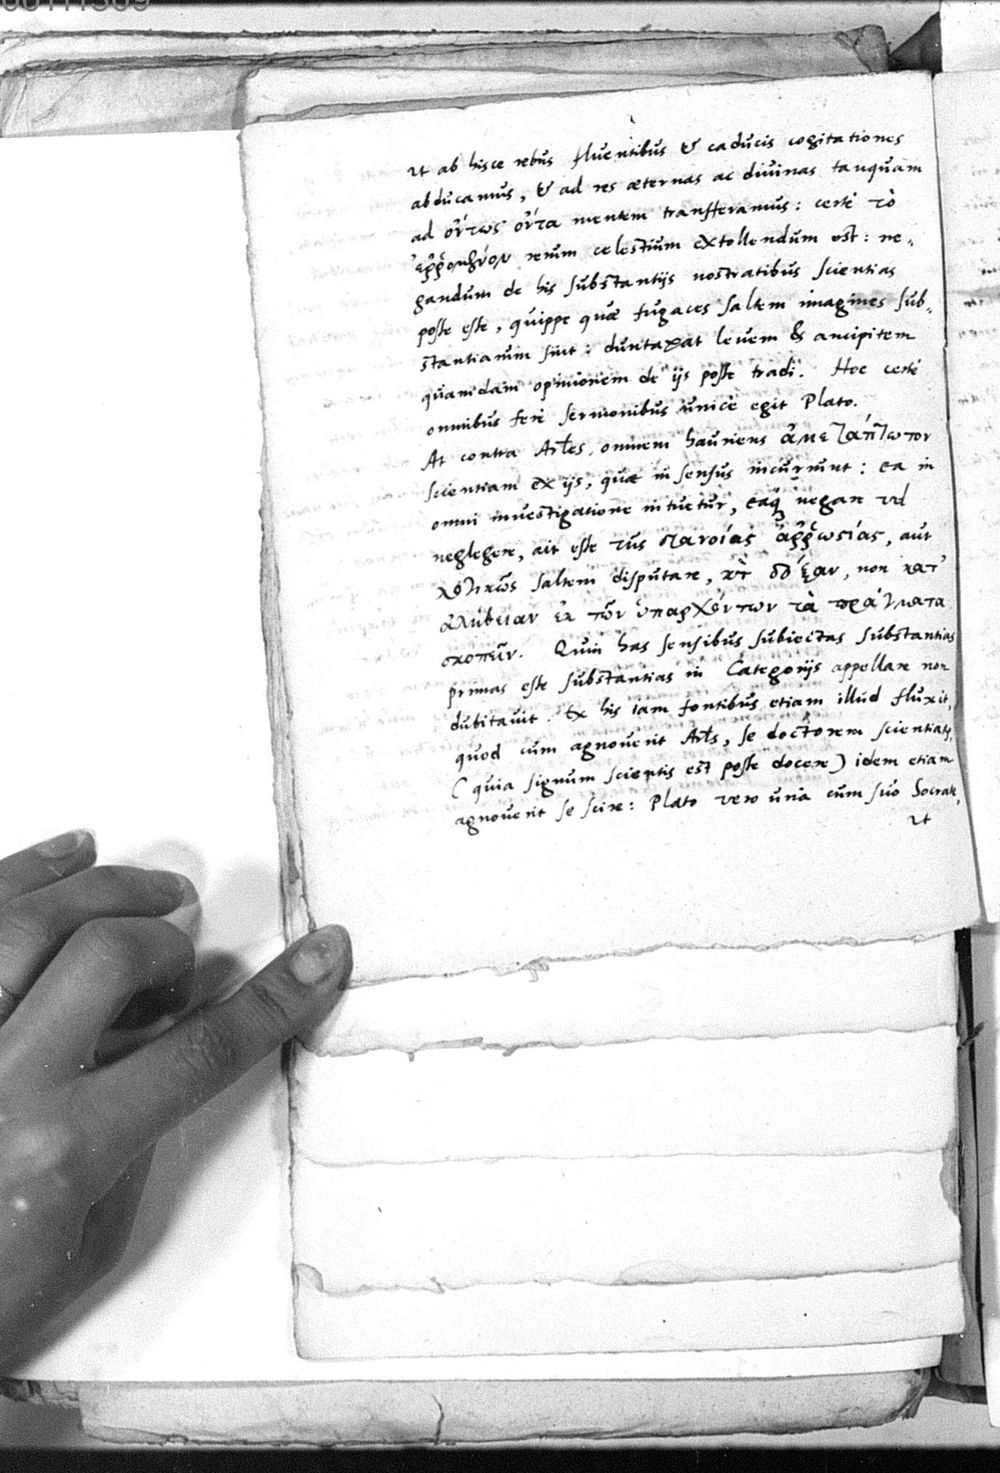 ut ab hisce rebus fluentibus & caducis cogitationes
abducamus, & ad res æternas ac divinas tanquam
ad ὄντως ὄντα mentem transferamus: certè τὸ
rerum celestium extollendum est: ne-
gandum de his substantijs nostratibus scientias
posse esse, quippe quæ fugaces saltem imagines sub-
stantiarum sint: duntaxat levem & ancipitem
quamdam opinionem de ijs posse tradi. Hoc certè
omnibus ferè sermonibus unicè egit Plato.
At contra Arles, omnem hauriens ἀμετάπτωτον
scientiam ex ijs, quæ in sensus incurrunt: ea in
omni investigatione intuetur, eaq; negare vel
neglegere, ait esse τῆς διανοίας ἀῤῥωσίας, aut
saltem disputare, κτ̀ δόξαν, non κατ'
ἀλήθειαν ἐκ τῶν ὑπαρχόντων τὰ πράγματα
σκοπεῖν. Quin has sensibus subiectas substantias
primas esse substantias in Categorijs appellare non
dubitavit. Ex his iam fontibus etiam illud fluxit,
quod cum agnoverit Arles, se doctorem scientiæ,
(quia signum scientis est posse docere) idem etiam
agnoverit se scire: Plato vero unà cum suo Socrate,
ut